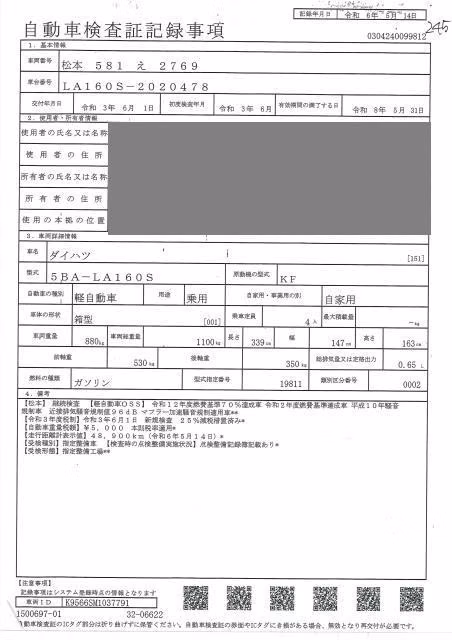 記録年月日 令和 6年 5月 14日
245
自動車検査証記録事項
0304240099812
1. 基本情報
車両番号 松本 581 え 2769
車台番号 LA160S-2020478
交付年月日 令和 3年 6月 1日 初度検査年月 令和 3年 6月 有効期間の満了する日 令和 8年 5月 31日
2. 使用者・所有者情報
使用者の氏名又は名称
使用者の住所
所有者の氏名又は名称
所有者の住所
使用の本拠の位置
3. 車両詳細情報
車名 ダイハツ [151]
型式 5BA-LA160S 原動機の型式 KF
自動車の種別 軽自動車 用途 乗用 自家用・事業用の別 自家用
車体の形状 箱型 [001] 乗車定員 4人 最大積載量 -kg
車両重量 880kg 車両総重量 1100kg 長さ 339cm 幅 147cm 高さ 163cm
前軸重 530kg 後軸重 350kg 総排気量又は定格出力 0.65 L
燃料の種類 ガソリン 型式指定番号 19811 類別区分番号 0002
4. 備考
【松本】 継続検査 【軽自動車OSS】 令和12年度燃費基準70%達成車 令和2年度燃費基準達成車 平成10年騒音
規制車 近接排気騒音規制値96dB マフラー加速騒音規制適用車**
【令和3年度税制】令和3年6月1日 新規検査 25%減税措置済み*
【自動車重量税額】¥5,000 本則税率適用*
【走行距離計表示値】48,900km(令和6年5月14日)*
【受検種別】指定整備車 【検査時の点検整備実施状況】点検整備記録簿記載あり*
【受検形態】指定整備工場**
【注意事項】
記録事項はシステム登録時点の情報となります
車両ID K9566SM1037791
1500697-01 32-06622
自動車検査証のICタグ部分は折り曲げずに保管ください。自動車検査証の券面やICタグに台損がある場合、無効となり再交付が必要です。